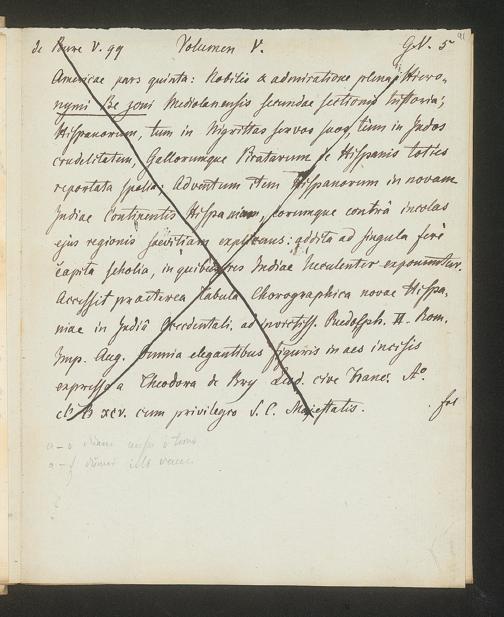 91
de Bure V. 99 Volumen V. G.V. 5
Americae pars quinta: Nobilis & admiratione plena Hiero-
nymi Be zoni Mediolanensis secundae sectionis Historia;
Hispanorum, tum in Nigrittas servos suos, tum in Indos
crudelitatem, Gallorumque Piratarum de Hispanis toties
reportata spolia; Adventum item Hispanorum in novam
Indiae Continentis Hispaniam, eorumque contra incolas
ejus regionis saevitiam explicans: addita ad singula fere
capita scholia, in quibus res Indiae luculenter exponuntur.
Accessit praeterea Tabula Chorographica novae Hispa
niae in Indiâ Occidentali. ad invictiss. Rudolph. II. Rom.
Imp. Aug. Omnia elegantibus figuris in aes incisis
expressa a Theodoro de Bry Leod. cive Franc. Aº
cIɔ Iɔ xcv. cum privilegio S. C. Majestatis. fol